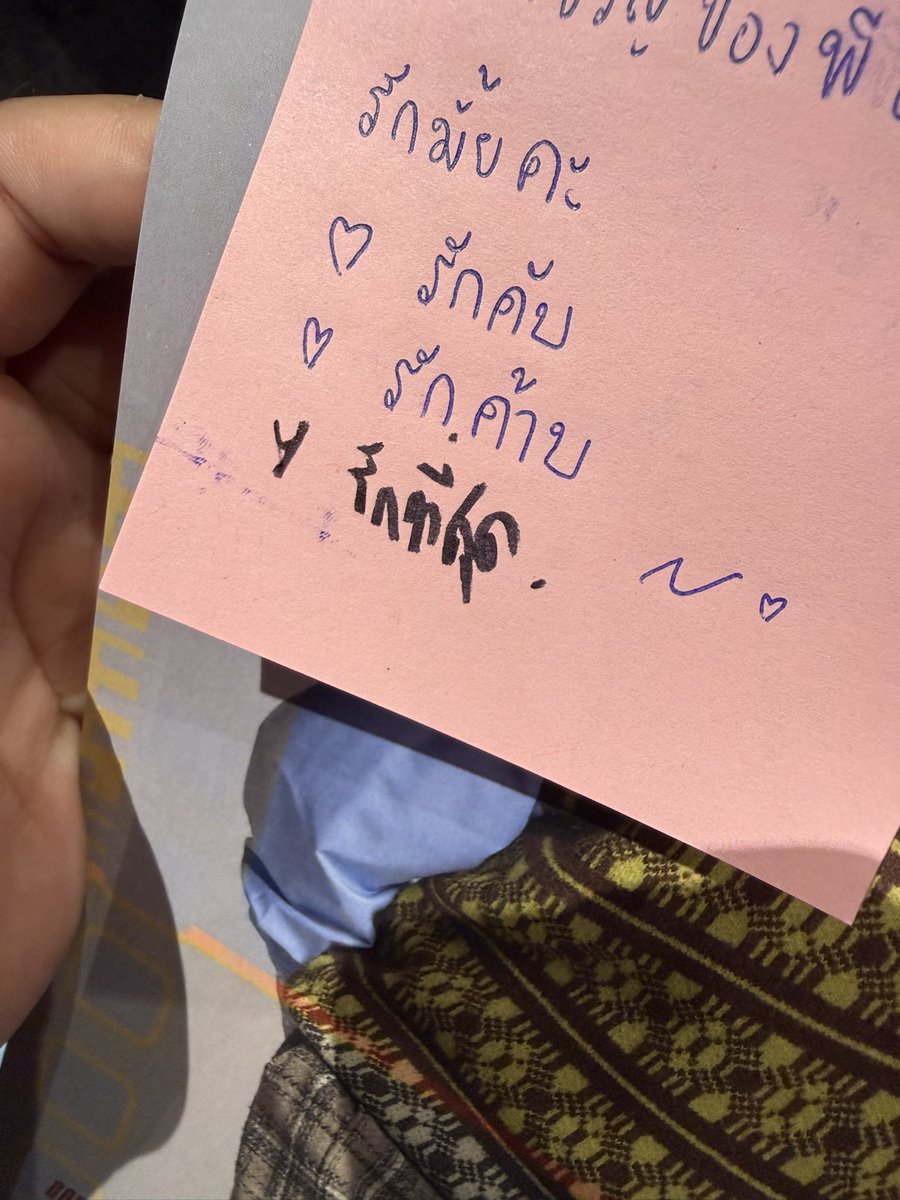 ของพี่
รักมั้ยคะ
♡ รักคับ
♡ รักค้าบ
y รักที่สุด.
~ ♡